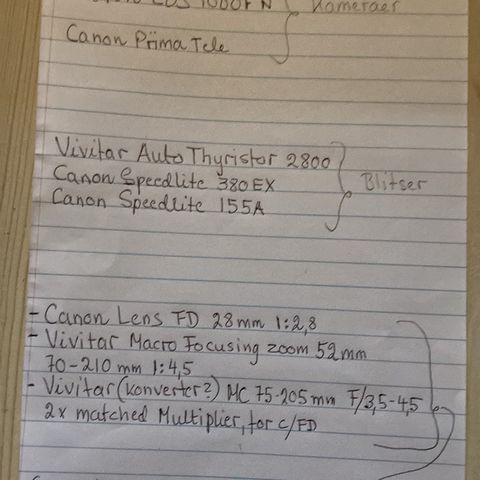 EOS 1000F N } Kameraer
Canon Prima Tele
Vivitar Auto Thyristor 2800
Canon Speedlite 380EX } Blitser
Canon Speedlite 155A
- Canon Lens FD 28mm 1:2,8
- Vivitar Macro Focusing zoom 52mm
70-210 mm 1:4,5
- Vivitar (konverter?) MC 75-205mm F/3,5-4,5
2x matched Multiplier, for c/FD